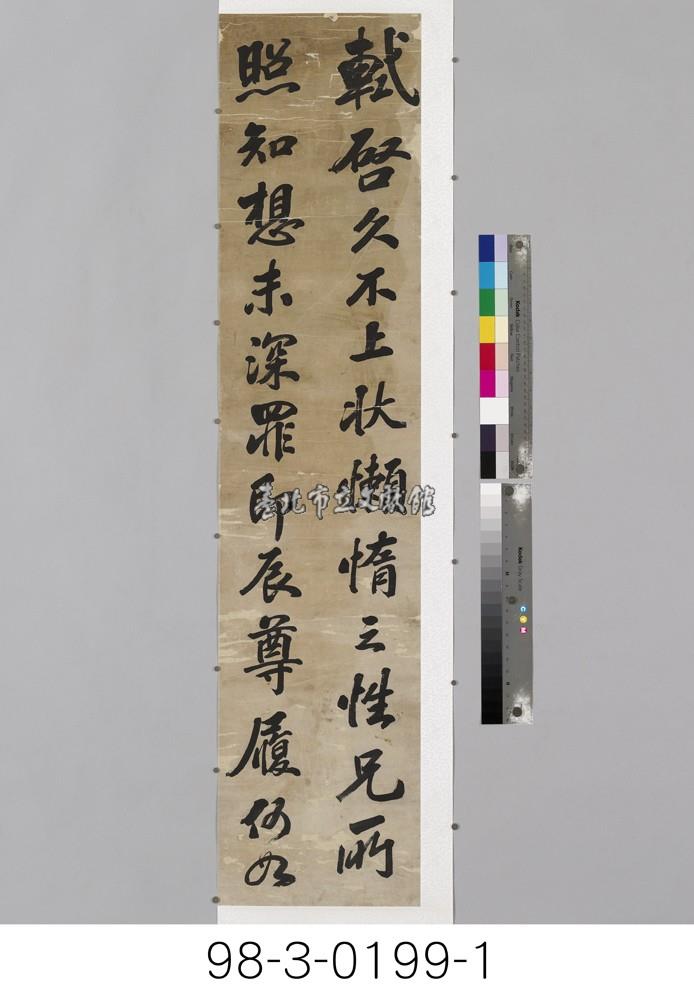 軾啓久不上狀懶惰之性兄所
照知想未深罪即辰尊履何如
臺北市立文獻館
Kodak Color Control Patches
Kodak Gray Scale
C
Y
M
98-3-0199-1